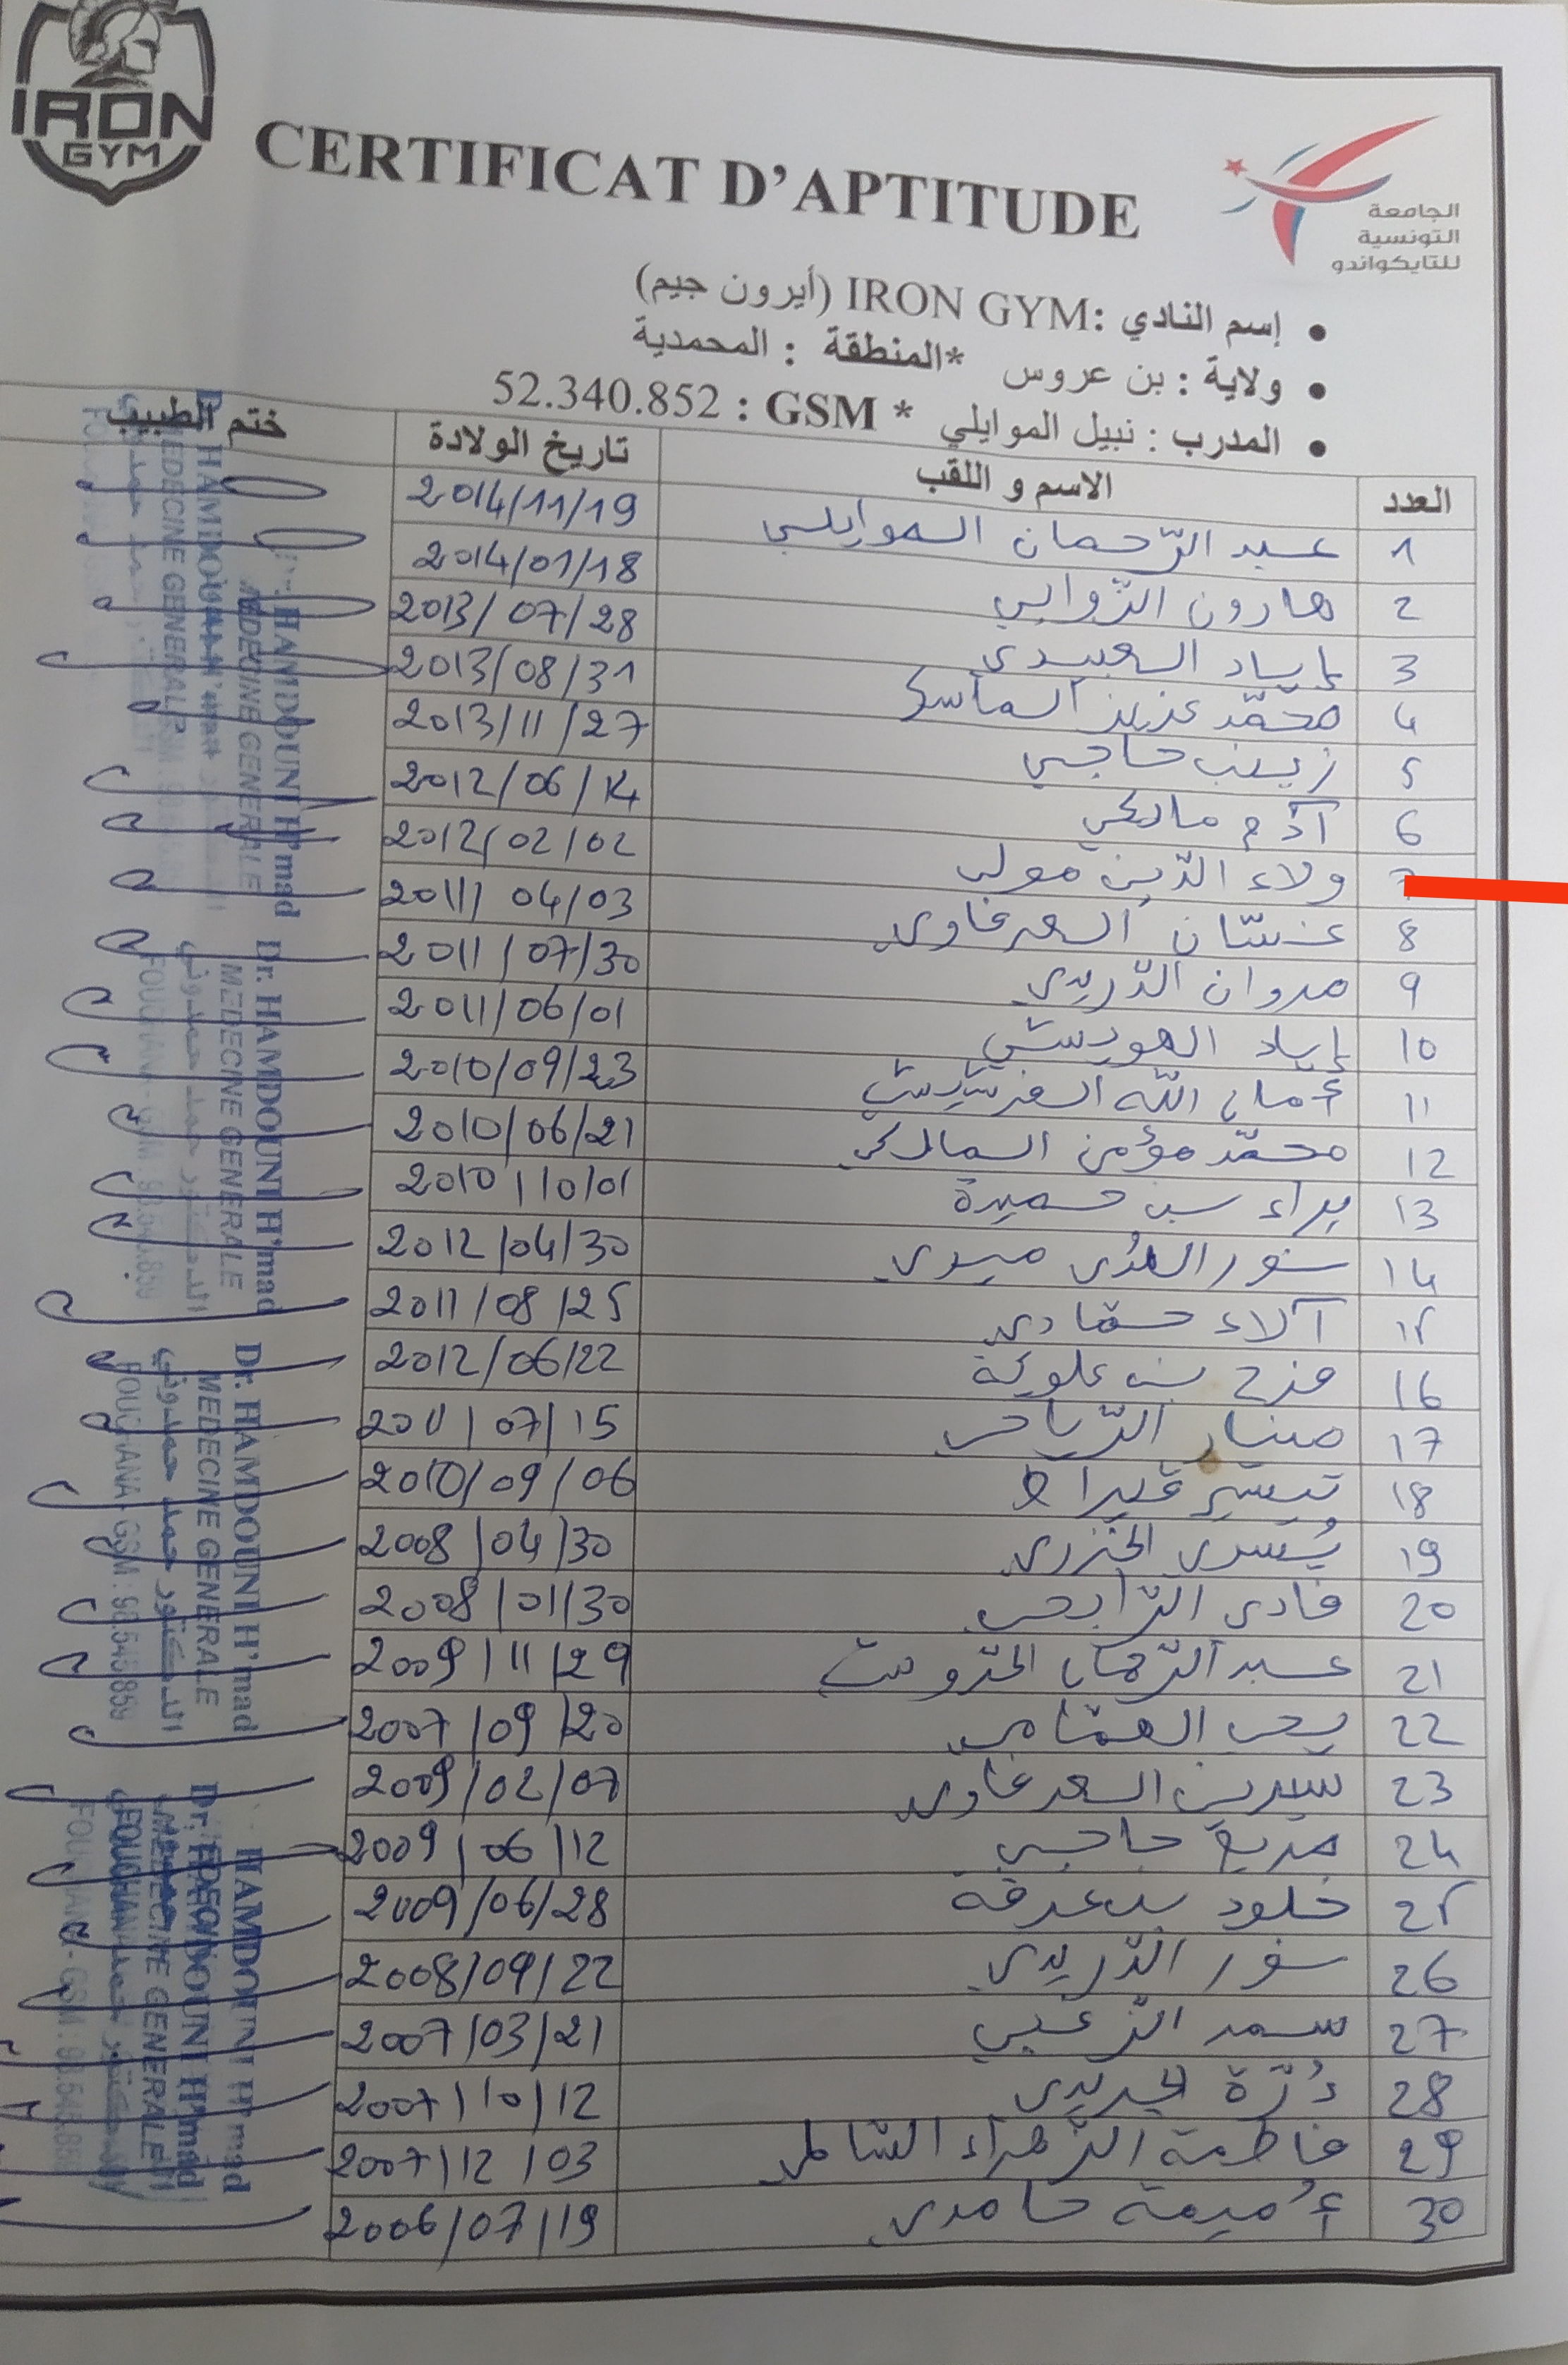 IRON
GYM
CERTIFICAT D'APTITUDE
الجامعة
التونسية
للتايكواندو
• إسم النادي :IRON GYM (أيرون جيم)
• ولاية : بن عروس *المنطقة : المحمدية
• المدرب : نبيل الموايلي * GSM : 52.340.852
العدد الاسم و اللقب تاريخ الولادة ختم الطبيب
1 عبد الرّحمان الموايلي 2014/11/19
2 هارون الزوابي 2014/01/18
3 إياد العبيدي 2013/07/28
4 محمّد عزيز 2013/08/31
5 زينب حاجي 2013/11/27
6 آدم مالكي 2012/06/14
7 ولاء الدّين مولى 2012/02/02
8 غسّان السعرفاوي 2011/04/03
9 مروان الدّريدي 2011/07/30
10 إياد 2011/06/01
11 أمان الله 2010/09/23
12 محمّد مؤمن المالكي 2010/06/21
13 براء بن حميدة 2010/10/01
14 نور الهُدى ميدي 2012/04/30
15 آلاء حمّادي 2011/08/25
16 فرح بن علوية 2012/06/22
17 الرّياحي 2011/07/15
18 تيسير قيراط 2010/09/06
19 يُسرى الخزري 2008/04/30
20 فادي الرّابحي 2008/01/30
21 عبد الرّحمان 2009/11/29
22 يحي 2007/09/20
23 سيرين السعرفاوي 2009/02/07
24 مريم حاجي 2009/06/12
25 خلود بن عرفة 2009/06/28
26 نور الدّريدي 2008/09/22
27 سمر الزغبي 2007/03/21
28 دُرّة الجريدي 2007/10/12
29 فاطمة الزّهراء 2007/12/03
30 أُميمة حامدي 2006/07/19
Dr. HAMDOUNI H'mad
MEDECINE GENERALE
الدكتور حمد حمدوني
FOUCHANA - GSM : 98.545.859